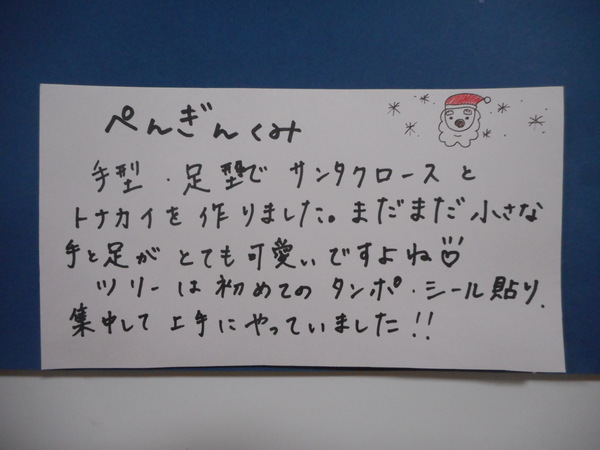 ぺんぎんくみ
手型・足型で サンタクロースと
トナカイを作りました。まだまだ小さな
手と足がとても可愛いですよね♡
ツリーは初めてのタンポ・シール貼り、
集中して上手にやっていました!!